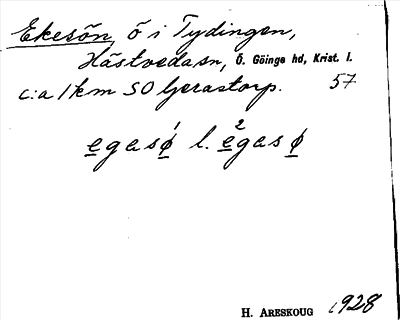 Ekesön, ö i Tydingen,
Hästvedasn, Ö. Göinge hd, Krist. l.
c:a 1 km SO Gerastorp. 57
e̲gasǿ̲ l. e̲²gasø̲
H. ARESKOUG 1928